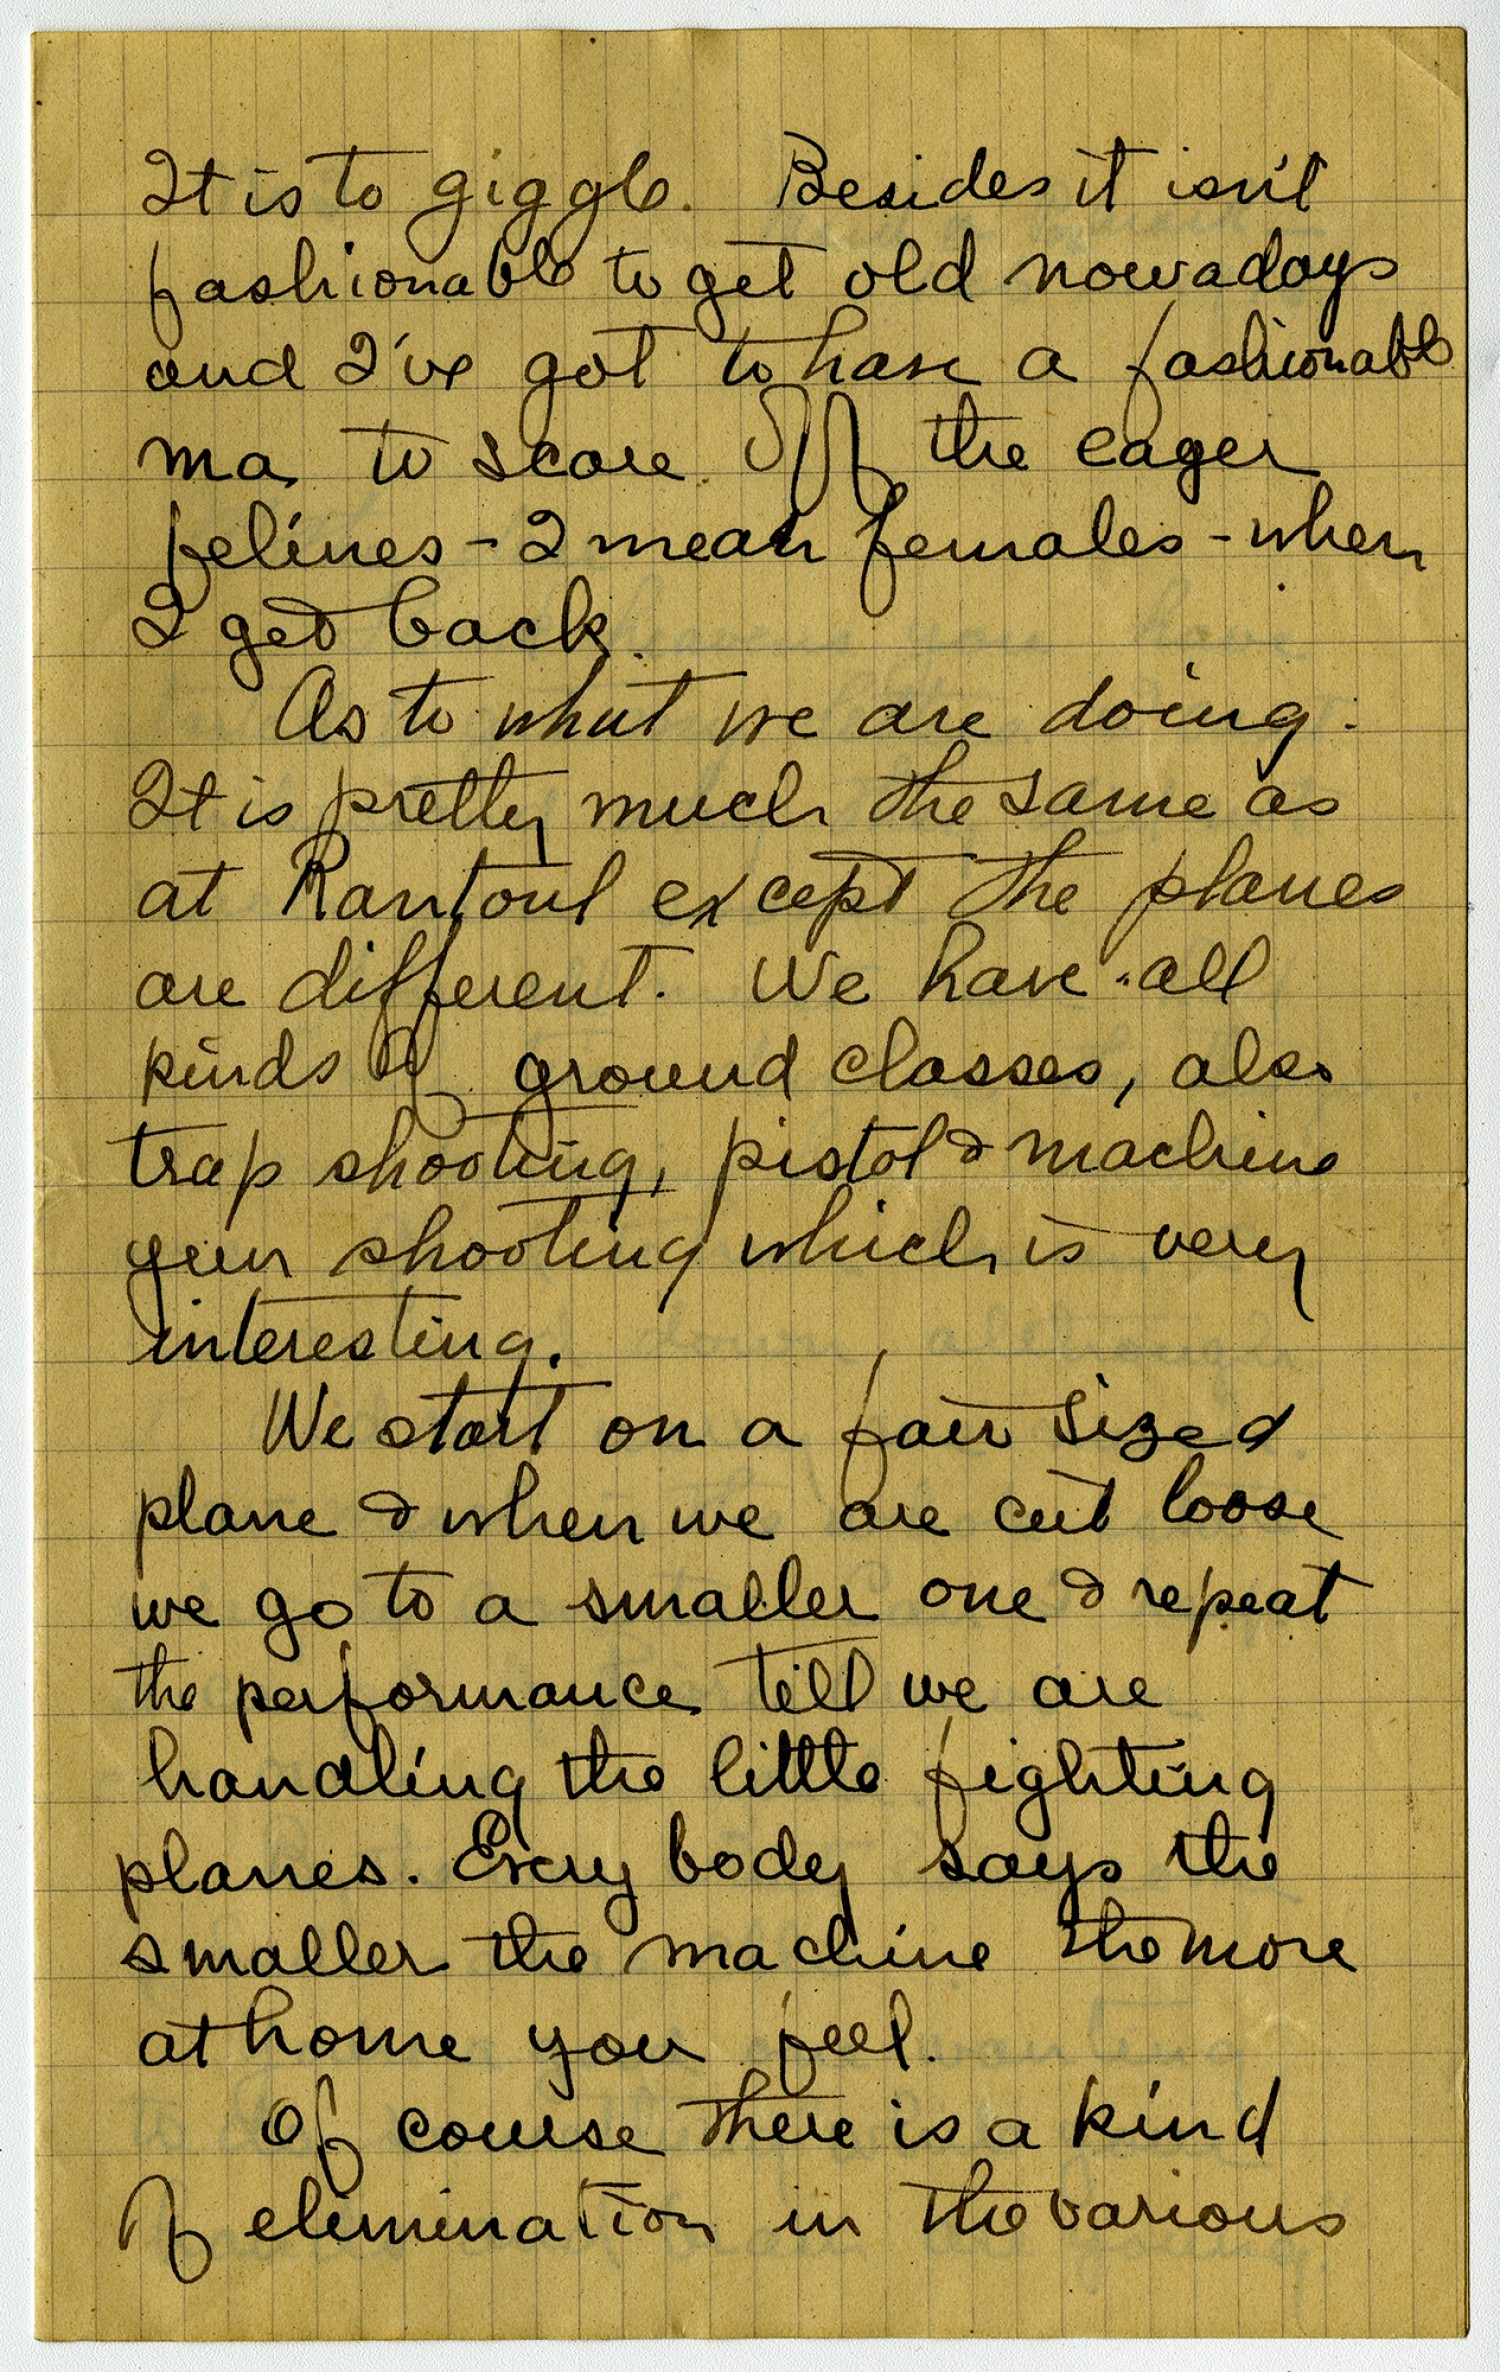 It is to giggle. Besides it isn't
fashionable to get old nowadays
and I've got to have a fashionable
ma to scare off the eager
felines - I mean females - when
I get back.
As to what we are doing.
It is pretty much the same as
at Rantoul except the planes
are different. We have all
kinds of ground classes, also
trap shooting, pistol & machine
gun shooting which is very
interesting.
We start on a fair sized
plane & when we are cut loose
we go to a smaller one & repeat
the performance till we are
handling the little fighting
planes. Every body says the
smaller the machine the more
at home you feel.
Of course there is a kind
of elimination in the various